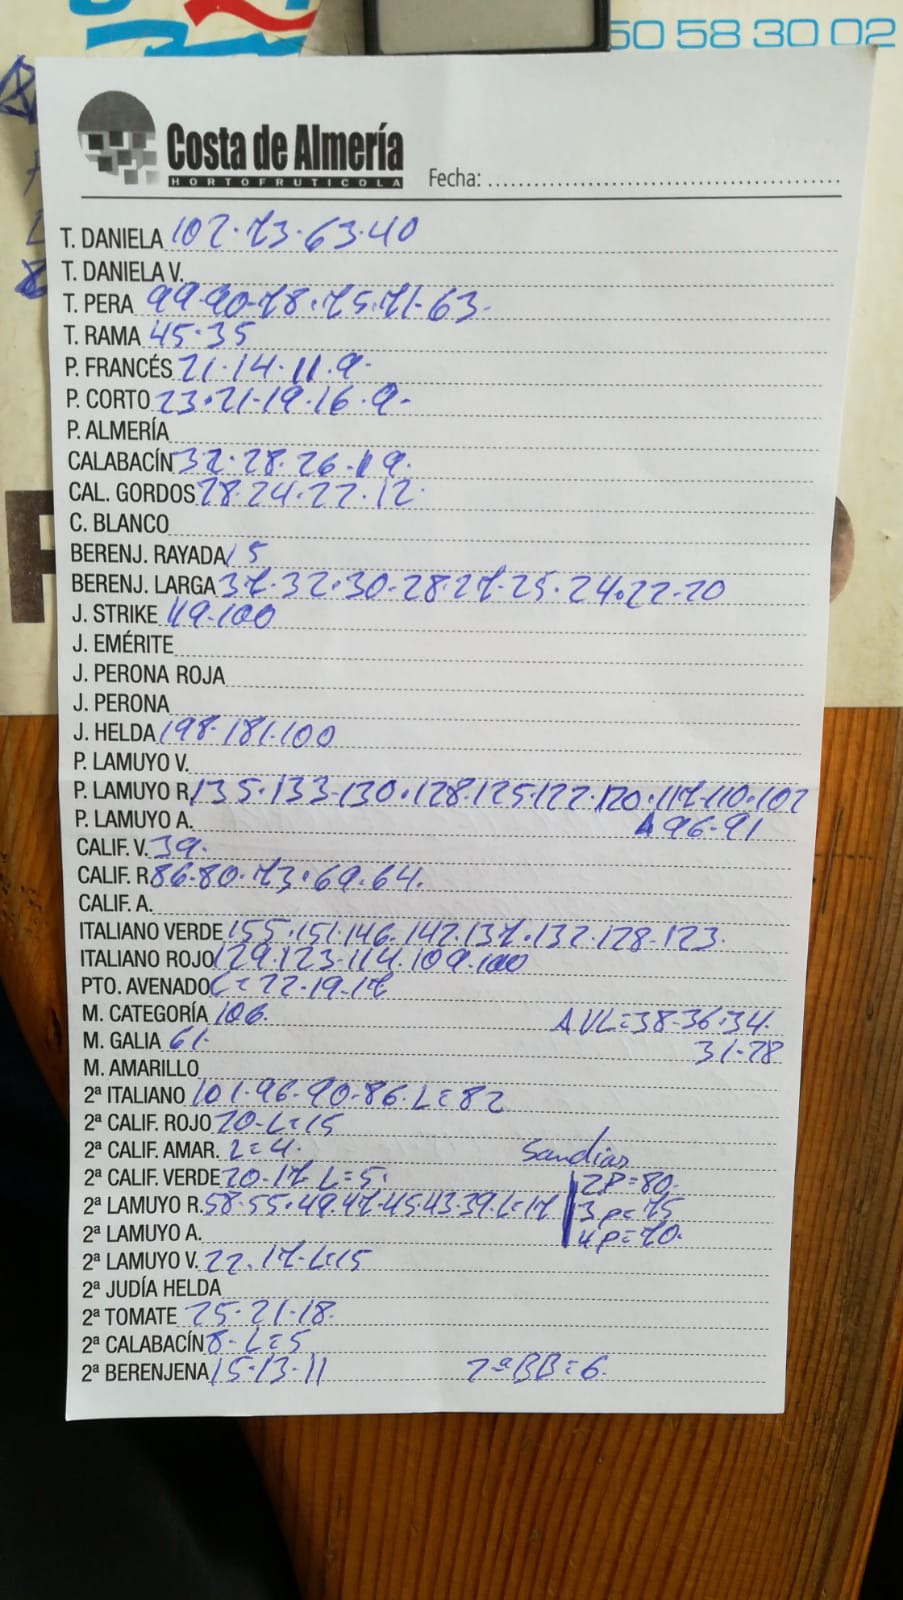 50 58 30 02
Costa de Almería
HORTOFRUTICOLA
Fecha:
T. DANIELA 102.73.63.40
T. DANIELA V.
T. PERA 99.90.78.75.71.63.
T. RAMA 45.35
P. FRANCÉS 21.14.11.9.
P. CORTO 23.21.19.16.9.
P. ALMERÍA
CALABACÍN 32.28.26.19.
CAL. GORDOS 28.24.22.12.
C. BLANCO
BERENJ. RAYADA 15
BERENJ. LARGA 37.32.30.28.27.25.24.22.20
J. STRIKE 119.100
J. EMÉRITE
J. PERONA ROJA
J. PERONA
J. HELDA 198.181.100
P. LAMUYO V.
P. LAMUYO R. 135.133.130.128.125.122.120.117.110.102
P. LAMUYO A. 96.91
CALIF. V. 39.
CALIF. R. 86.80.73.69.64.
CALIF. A.
ITALIANO VERDE 155.151.146.142.137.132.128.123.
ITALIANO ROJO 129.123.114.109.100
PTO. AVENADO L=22.19.17
M. CATEGORÍA 106. AVL=38.36.34.
M. GALIA 61. 31.28
M. AMARILLO
2ª ITALIANO 101.96.90.86.L=82
2ª CALIF. ROJO 20.L=15
2ª CALIF. AMAR. L=4. Sandias
2ª CALIF. VERDE 20.17 L=5. 2P=80.
2ª LAMUYO R. 58.55.49.47.45.43.39.L=17 3P=75
2ª LAMUYO A. 4P=70.
2ª LAMUYO V. 22.17.L=15
2ª JUDÍA HELDA
2ª TOMATE 25.21.18.
2ª CALABACÍN 8.L=5
2ª BERENJENA 15.13.11 2ªBB=6.